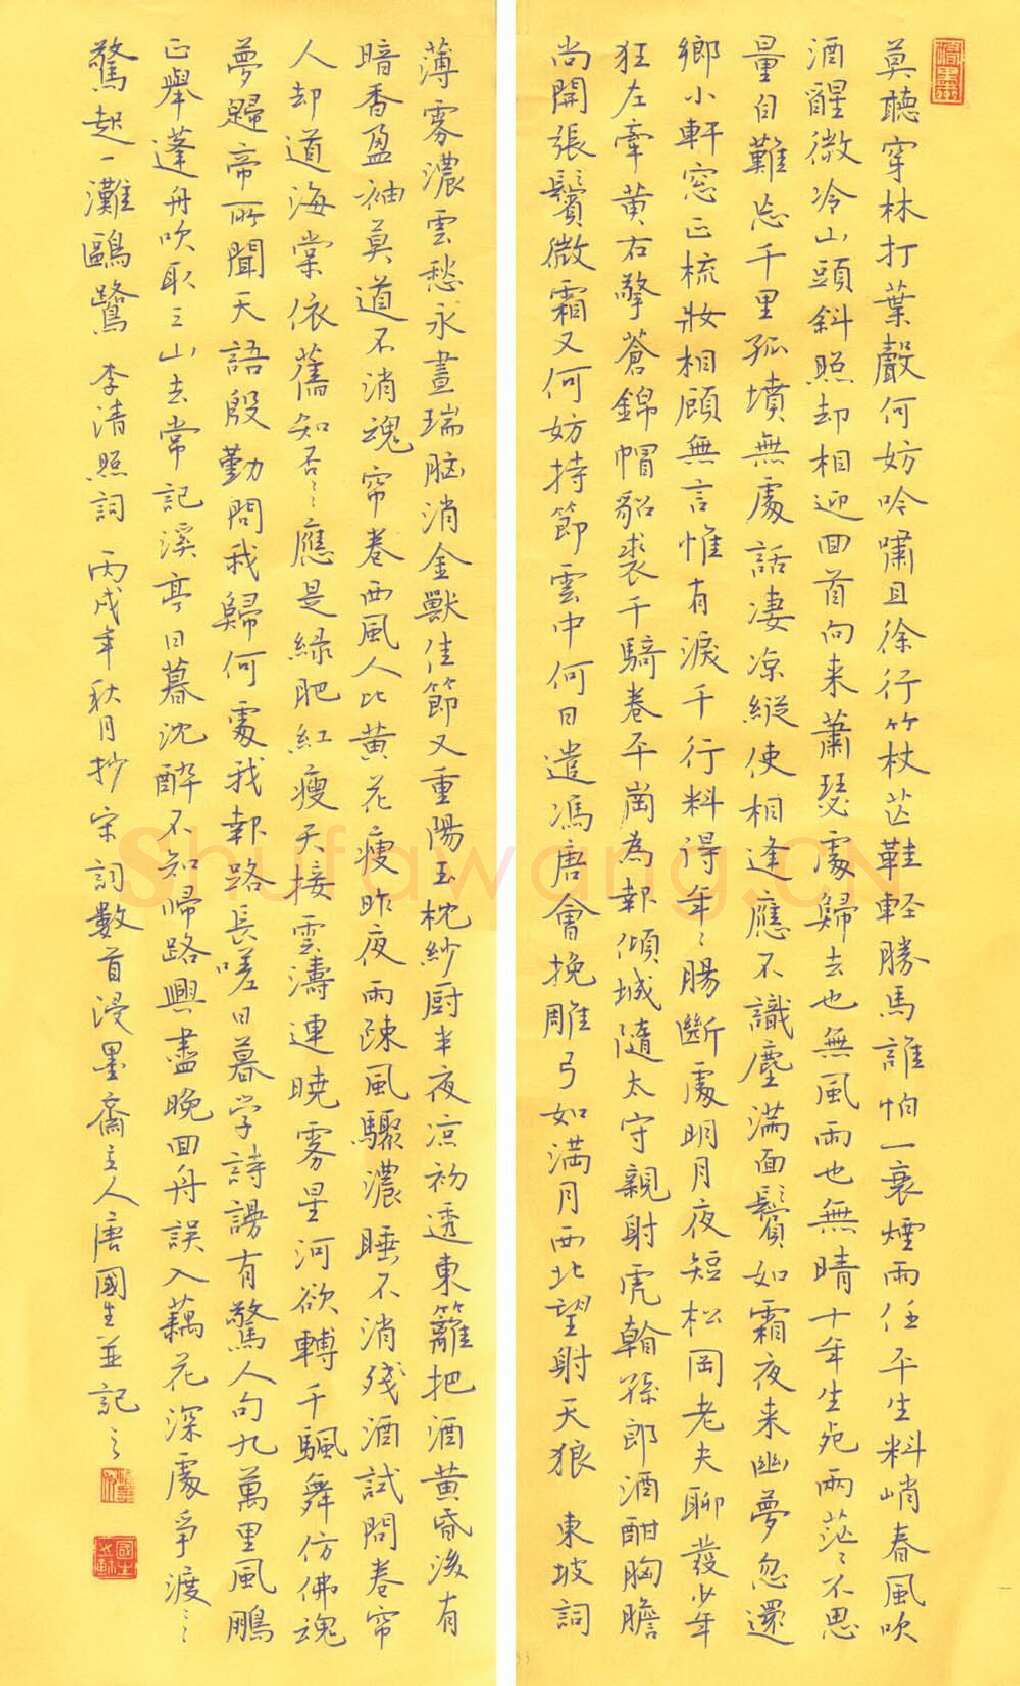 莫聽穿林打葉聲何妨吟嘯且徐行竹杖芒鞋軽勝馬誰怕一蓑煙雨任平生料峭春風吹
酒醒微冷山頭斜照却相迎回首向来蕭瑟處歸去也無風雨也無晴十年生死兩茫〻不思
量自難忘千里孤墳無處話淒凉縱使相逢應不識塵满面鬢如霜夜来幽夢忽還
鄉小軒窓正梳妝相顧無言惟有淚千行料得年〻腸斷處明月夜短松岡老夫聊發少年
狂左牽黄右擎蒼錦帽貂裘千騎卷平崗為報傾城隨太守親射虎看孫郎酒酣胸膽
尚開張鬢微霜又何妨持節雲中何日遣馮唐會挽雕弓如满月西北望射天狼 東坡詞
薄雾濃雲愁永晝瑞脑消金獸佳節又重陽玉枕紗厨半夜凉初透東籬把酒黄昏後有
暗香盈袖莫道不消魂帘卷西風人比黄花瘦昨夜雨疎風驟濃睡不消殘酒試問卷帘
人却道海棠依舊知否〻應是緑肥紅瘦天接雲濤連曉雾星河欲轉千颿舞仿佛魂
夢歸帝所聞天語殷勤問我歸何處我報路長嗟日暮学詩謾有驚人句九萬里風鵬
正舉蓬舟吹取三山去常記溪亭日暮沈醉不知歸路興盡晚回舟誤入藕花深處爭渡〻〻
驚起一灘鷗鷺 李清照詞 丙戌年秋月抄宋詞數首浸墨齋主人唐國生並記之
Shufawang.CN